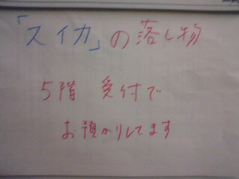 「スイカ」の落し物
5階 受付で
お預かりしてます